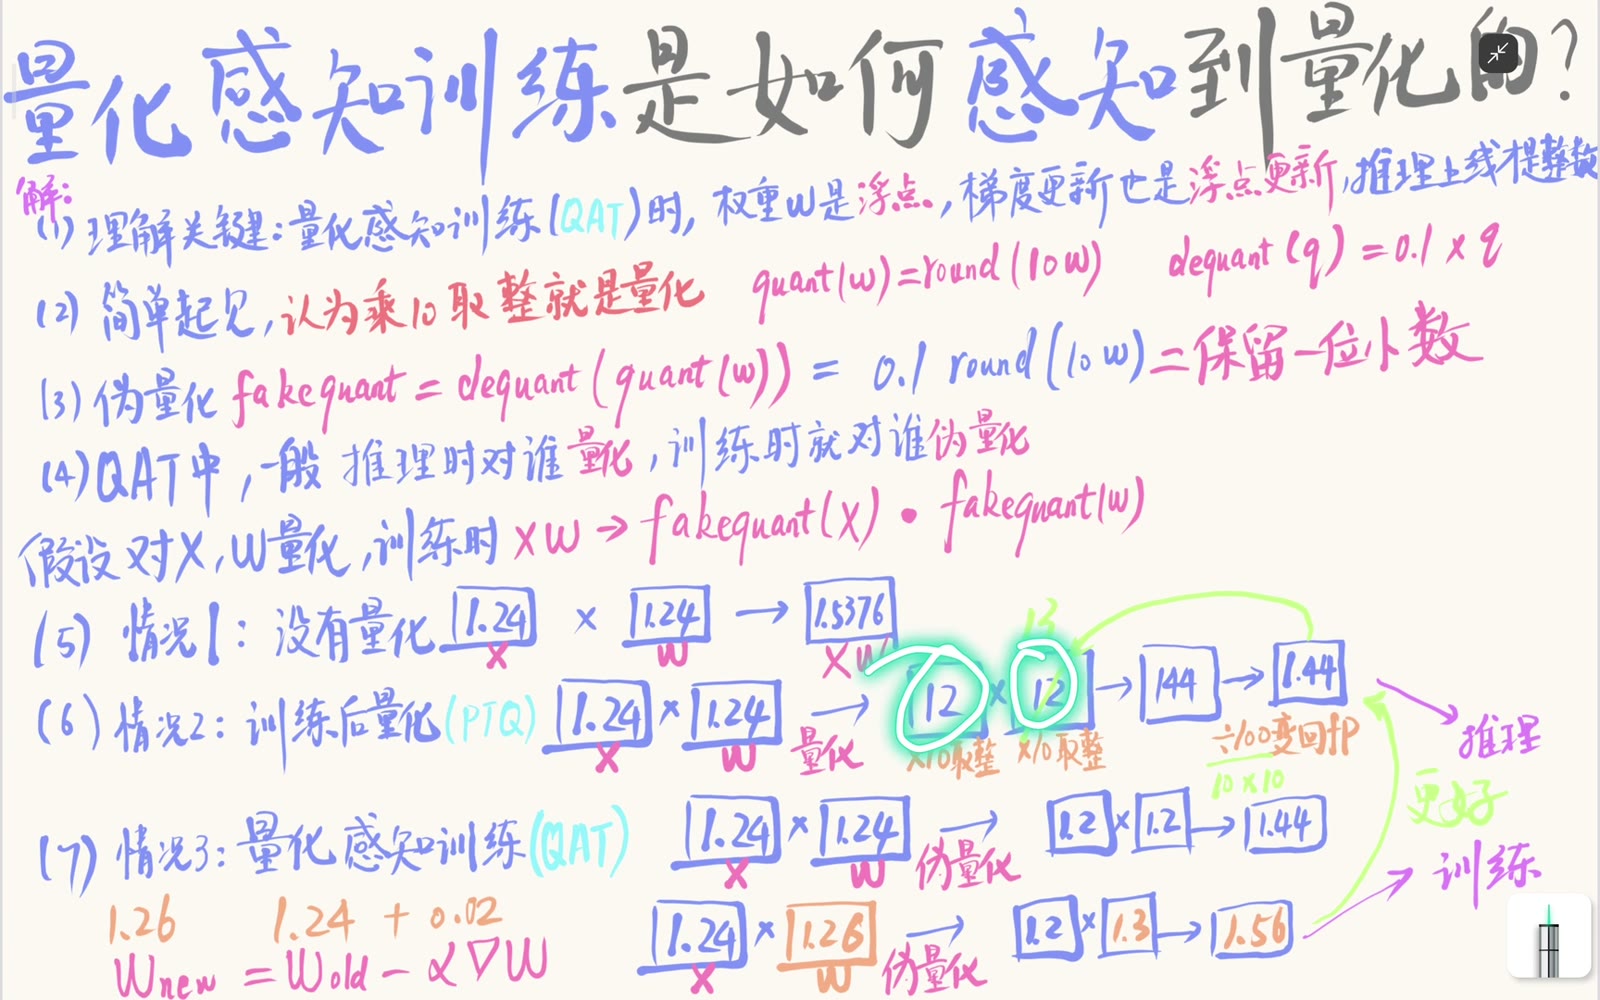 量化感知训练是如何感知到量化的?
解:
(1) 理解关键:量化感知训练(QAT)时,权重w是浮点,梯度更新也是浮点更新,推理上线才是整数
(2) 简单起见,认为乘10取整就是量化 quant(w)=round(10w) dequant(q)=0.1×q
(3) 伪量化 fakequant = dequant(quant(w)) = 0.1 round(10w)=保留一位小数
(4) QAT中,一般推理时对谁量化,训练时就对谁伪量化
假设对X,W量化,训练时 XW → fakequant(X) • fakequant(W)
(5) 情况1: 没有量化 1.24 × 1.24 → 1.5376
X W XW
13
(6) 情况2: 训练后量化(PTQ) 1.24 × 1.24 → 12 × 12 → 144 → 1.44
X W 量化 ×10取整 ×10取整 ÷100变回fP 推理
10×10 更好
(7) 情况3: 量化感知训练(QAT) 1.24 × 1.24 → 1.2 × 1.2 → 1.44
X W 伪量化 训练
1.26 1.24 + 0.02 1.24 × 1.26 → 1.2 × 1.3 → 1.56
Wnew = Wold - α∇W X W 伪量化